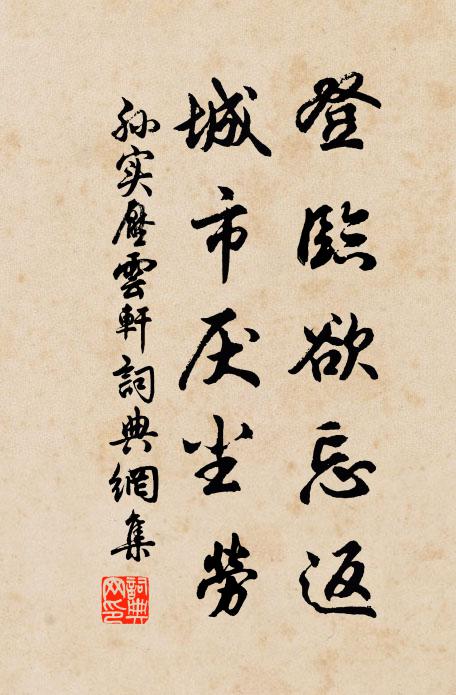 登臨欲忘返
城市厌尘勞
孙实歷雲軒詞典網集
詞典